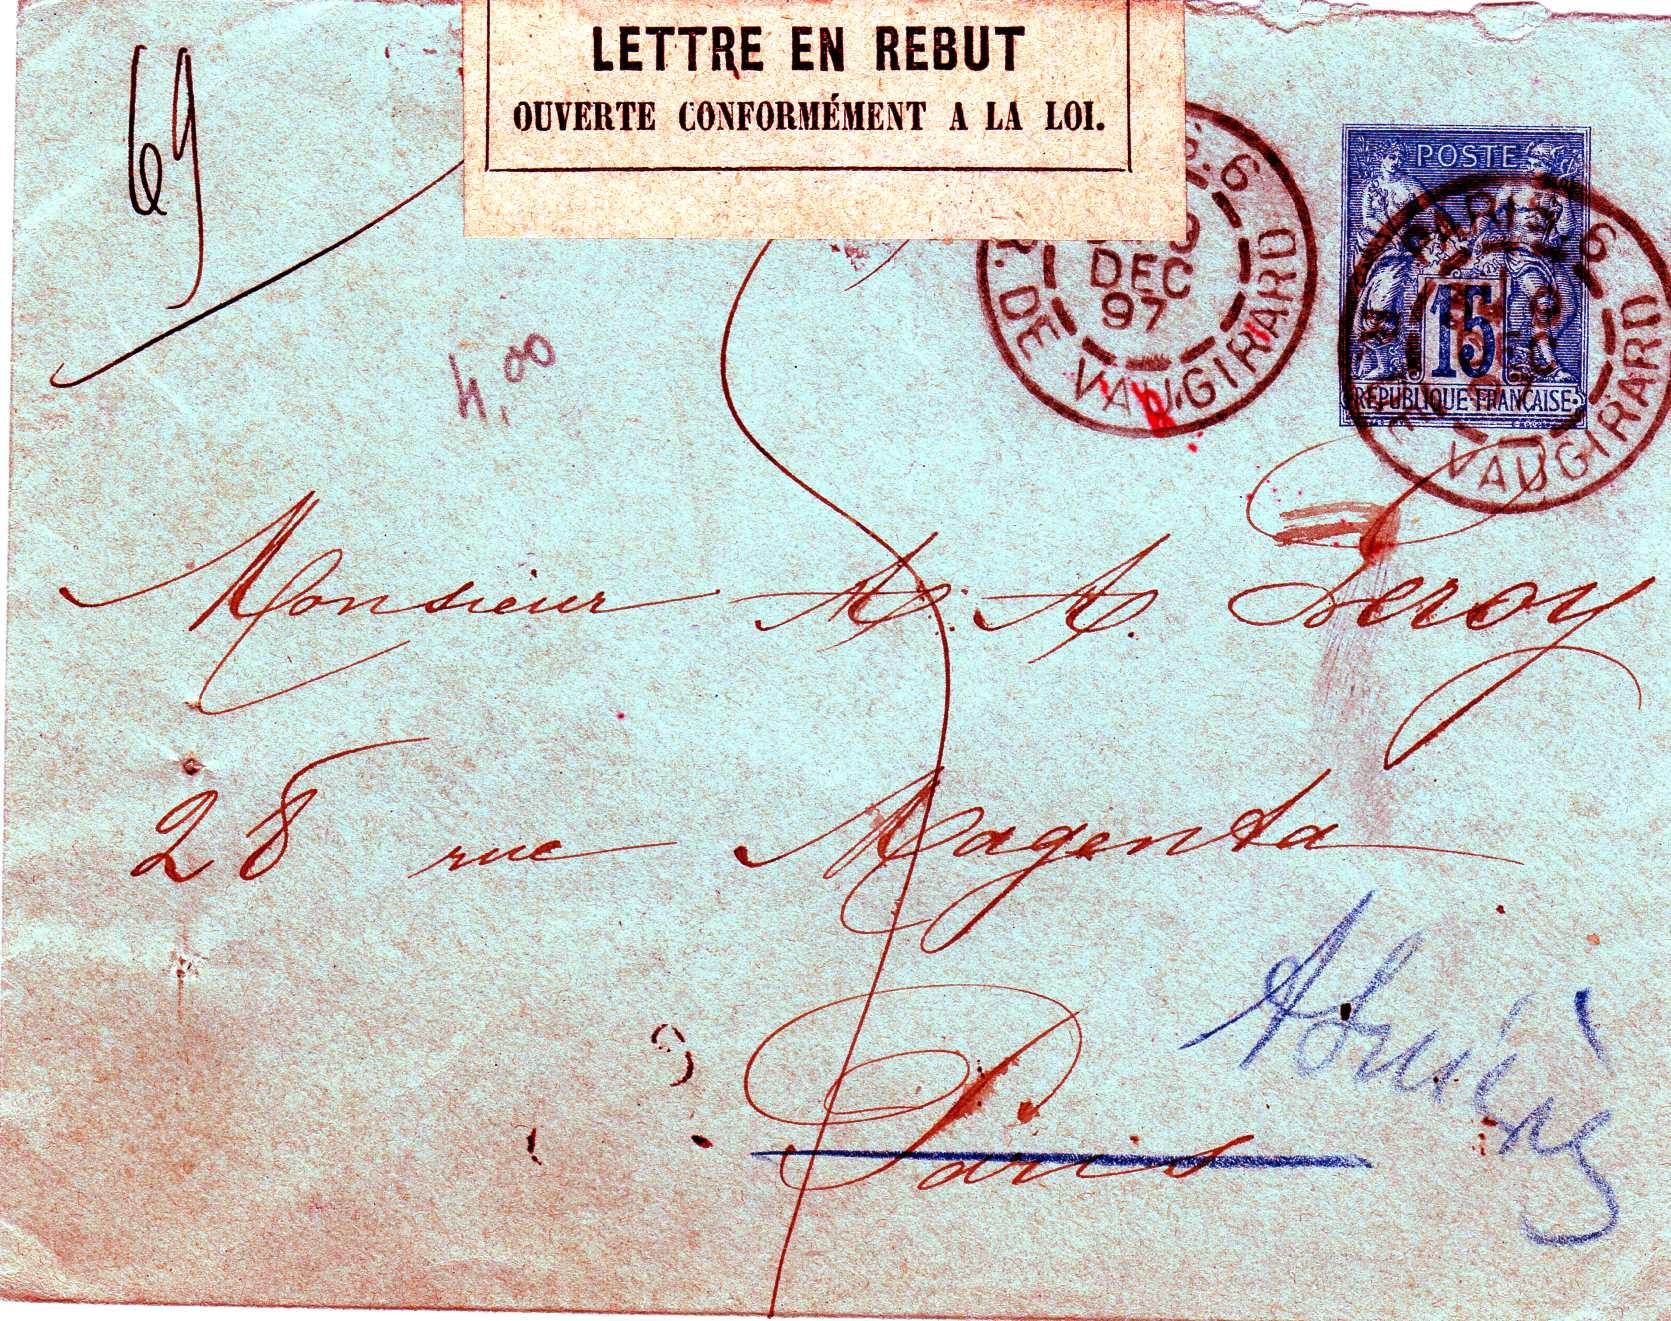 LETTRE EN REBUT
OUVERTE CONFORMÉMENT A LA LOI.
69
4,00
6
DEC
97
R. DE VAUGIRARD
POSTE
15
REPUBLIQUE FRANCAISE
PARIS 6
VAUGIRARD
Monsieur A. A. Leroy
28 rue Magenta
Paris